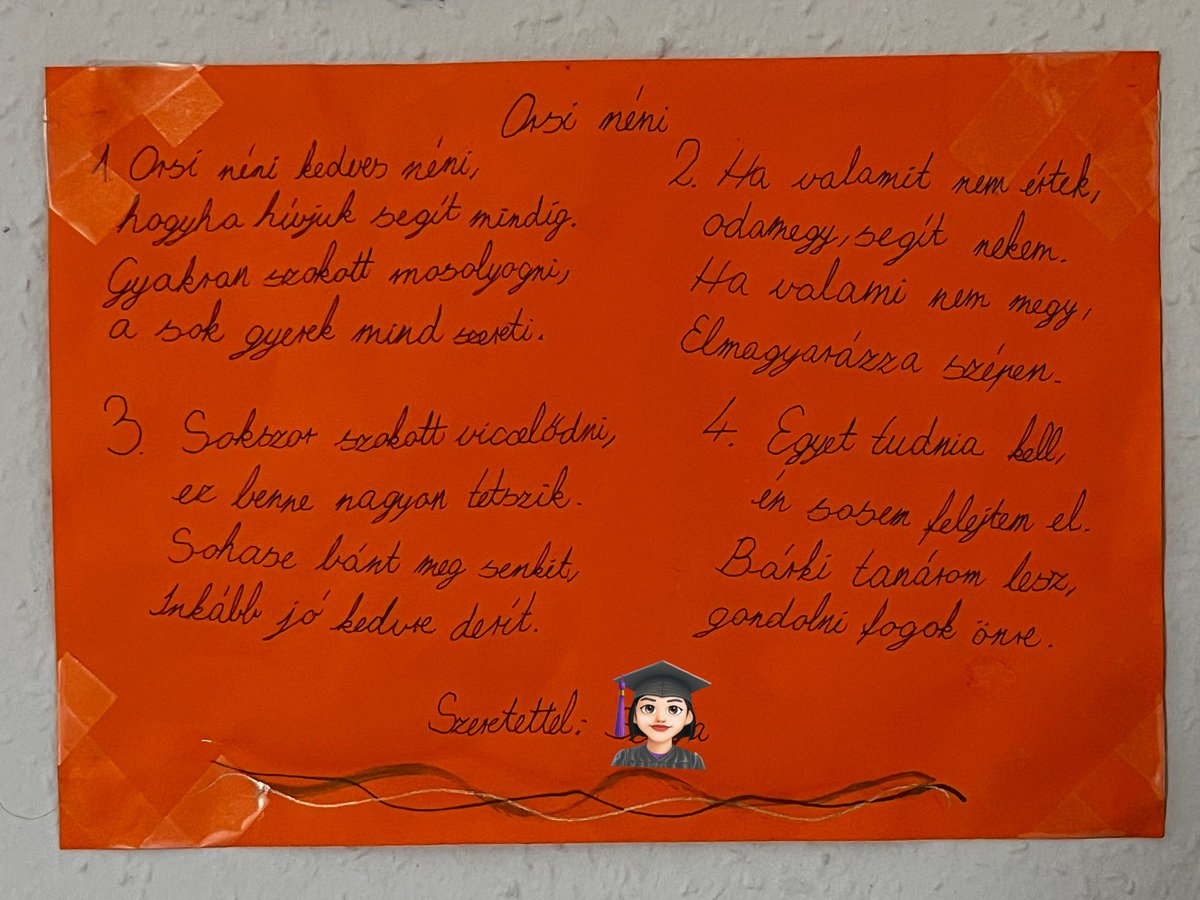 Orsi néni
1. Orsi néni kedves néni,
hogyha hívjuk segít mindig.
Gyakran szokott mosolyogni,
a sok gyerek mind szereti.
2. Ha valamit nem értek,
odamegy, segít nekem.
Ha valami nem megy,
Elmagyarázza szépen.
3. Sokszor szokott viccelődni,
ez benne nagyon tetszik.
Sohase bánt meg senkit,
Inkább jó kedvre derít.
4. Egyet tudnia kell,
én sosem felejtem el.
Bárki tanárom lesz,
gondolni fogok önre.
Szeretettel: